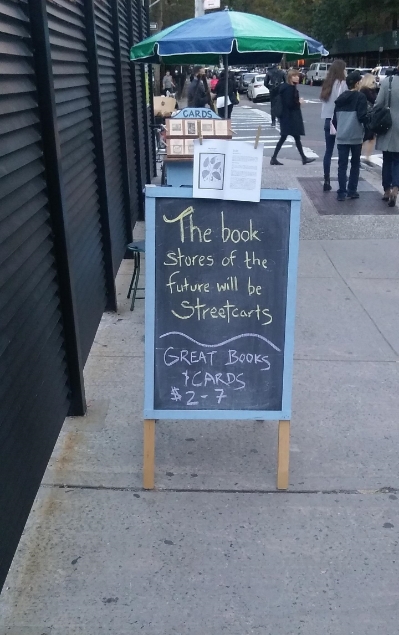 CARDS
The book
stores of the
future will be
Streetcarts
GREAT BOOKS
& CARDS
$2-7